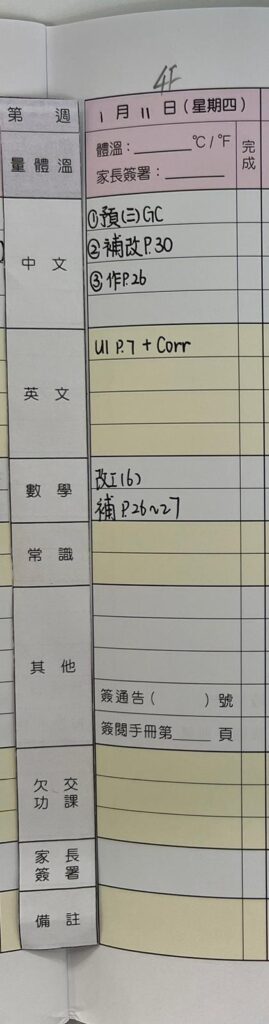 4F
第 週
1 月 11 日 (星期四)
量體溫
體溫：______°C / °F
家長簽署：______
完成
中文
①預(三)GC
②補改P.30
③作P.26
英文
U1 P.7 + Corr
數學
改工(6)
補 P.26~27
常識
其他
簽通告（ ）號
簽閱手冊第____頁
欠交功課
家長簽署
備註